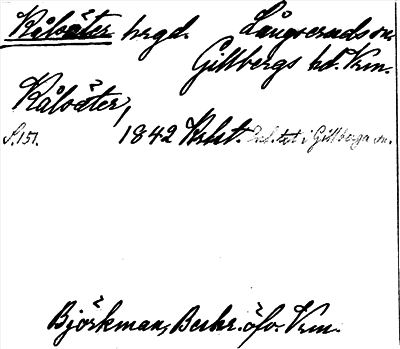 Kålsäter hrgd. Långseruds sn.
Gillbergs hd. Vrm.
Kålsäter,
S. 151. 1842 Krbt. i Gillberga sn.
Björkman, Beskr. öfv. Vrm.